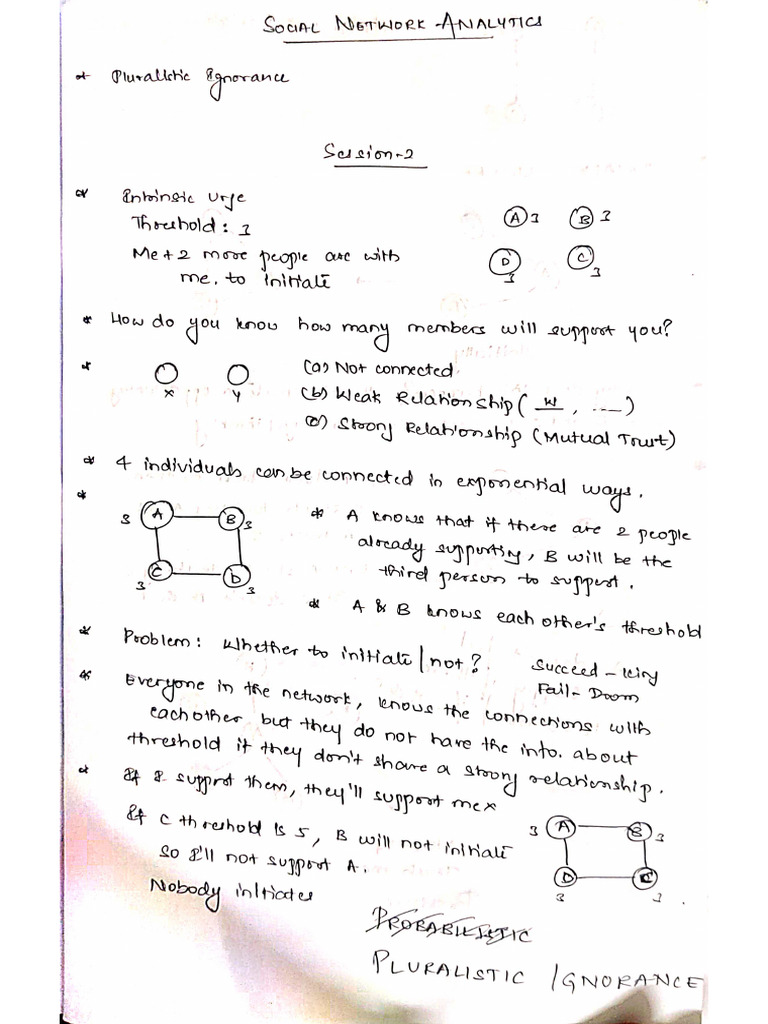 SOCIAL NETWORK ANALYTICS
* Pluralistic Ignorance
Session-2
* Intrinsic Urge
Threshold: 3
Me + 2 more people are with
me. to initiate
A 3 B 3
D 3 C 3
* How do you know how many members will support you?
* X Y
(a) Not connected
(b) Weak Relationship ( W , ---- )
(c) Strong Relationship (Mutual Trust)
* 4 individuals can be connected in exponential ways.
*
3 A B 3
3 C D 3
* A knows that if there are 2 people
already supporting, B will be the
third person to support.
* A & B knows each other's threshold
* Problem: Whether to initiate / not?
Succeed - King
Fail - Doom
* Everyone in the network, knows the connections with
each other but they do not have the info. about
threshold if they don't share a strong relationship.
* If I support them, they'll support me x
If C threshold is 5, B will not initiate
So I'll not support A.
Nobody initiates
3 A B 3
D 3 C 3
PROBABILISTIC
PLURALISTIC IGNORANCE